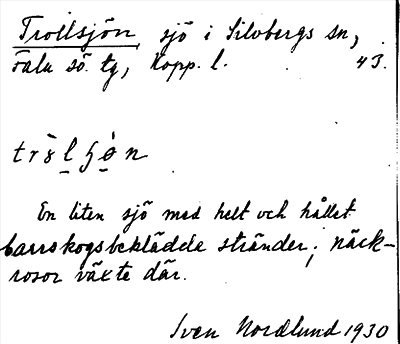 Trollsjön, sjö i Silvbergs sn,
Falu sö. tg, Kopp. l. 43.
En liten sjö med helt och hållet
barrskogsbeklädde stränder; näck-
rosor växte där.
Sven Nordlund 1930